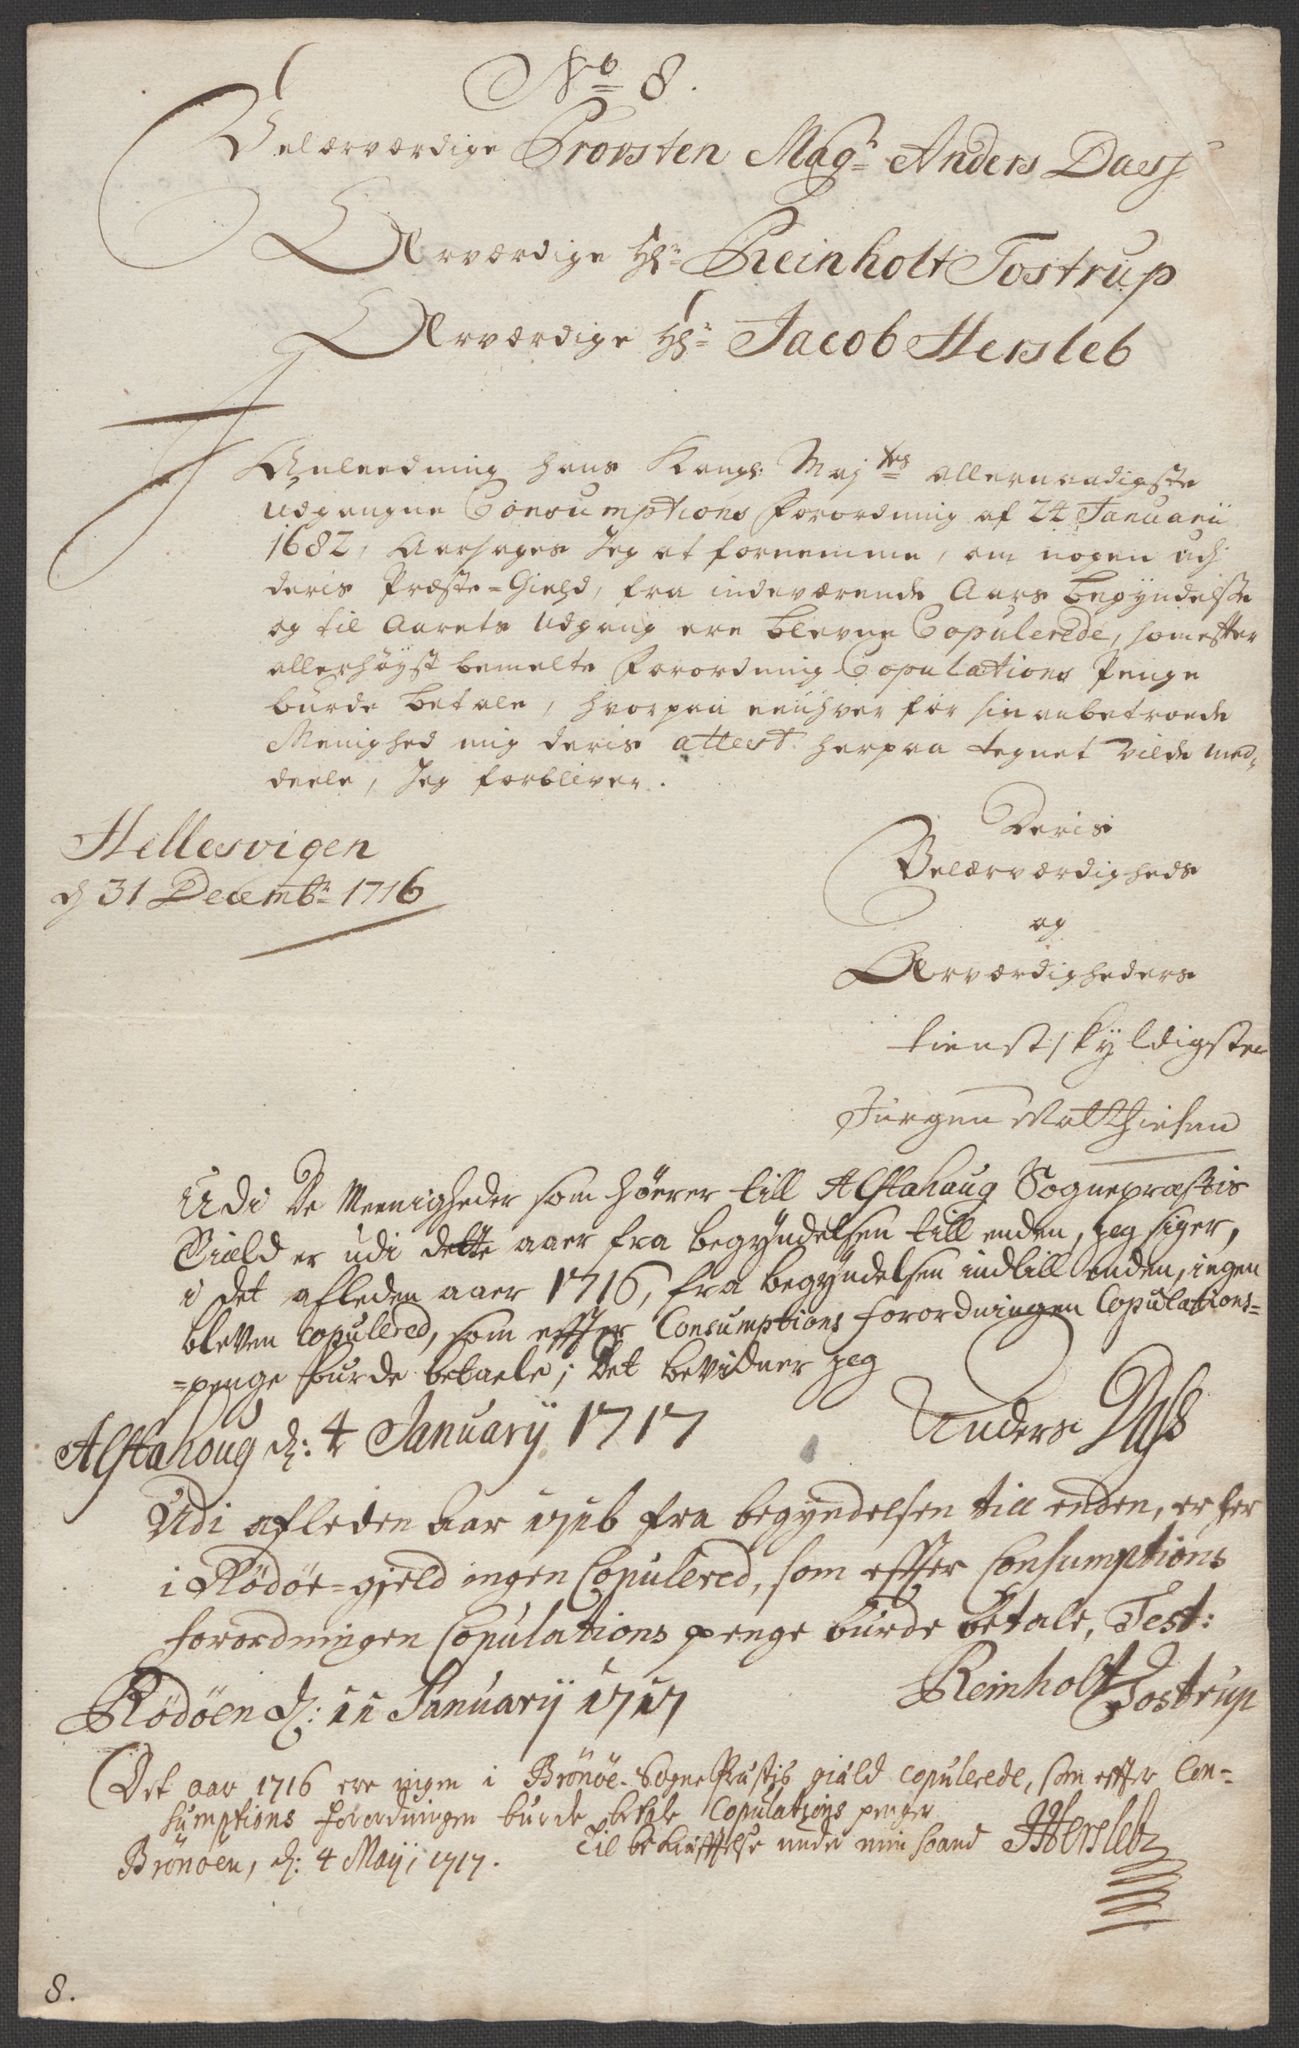 No 8.
Velærværdige Provsten Magr Anders Dass
Ærværdige Hr: Reinholt Tostrup
Ærværdige Hr: Jacob Hersleb
I Anledning hans Kongl: Maj:ts allernaadigste
udgangne Consumptions Forordning af 24 Januarii
1682, Aarsages Jeg at fornemme, om nogen udj
deris Præste-Gield, fra indeværende Aars begyndelse
og til Aarets udgang ere blevne Copulerede, som effter
allerhøyst bemelte Forordning Copulations Penge
burde betale, hvorpaa eenhver for sin anbetroede
Menighed mig deris attest herpaa tegnet vilde med-
deele, Jeg forbliver.
Deris
Hellesvigen
Velærværdigheds
d 31 Decembr: 1716
og
Ærværdigheders
tienstskyldigste
Jürgen Matthiesen
Udi de Meenigheder som hörer till Alstahaug Sognepræstis
Giæld er udi dette aaer fra begyndelsen till enden, jeg siger,
i det afleden aaer 1716, fra begyndelsen indtill enden, ingen
bleven copulered, som effter Consumptions forordningen Copulations-
=penge burde betaele; Det bevidner jeg
Alstahoug d: 4 Januarij 1717 Anders Dass
Udi afleden Aar 1716 fra begyndelsen till enden, er her
i Rödöe-gjeld ingen Copulered, som effter Consumptions
forordningen Copulations penge burde betale, Test:
Rödöen d: 11 Januarij 1717 Reinholt Tostrup
Det aar 1716 ere ingen i Brönöe Sogne Præstis giæld copulerede, som effter Con-
sumptions forordningen burde betale Copulations penger
Til bekræfftelse under min haand JHersleb
Brönöen, d: 4 Maij, 1717.
8.